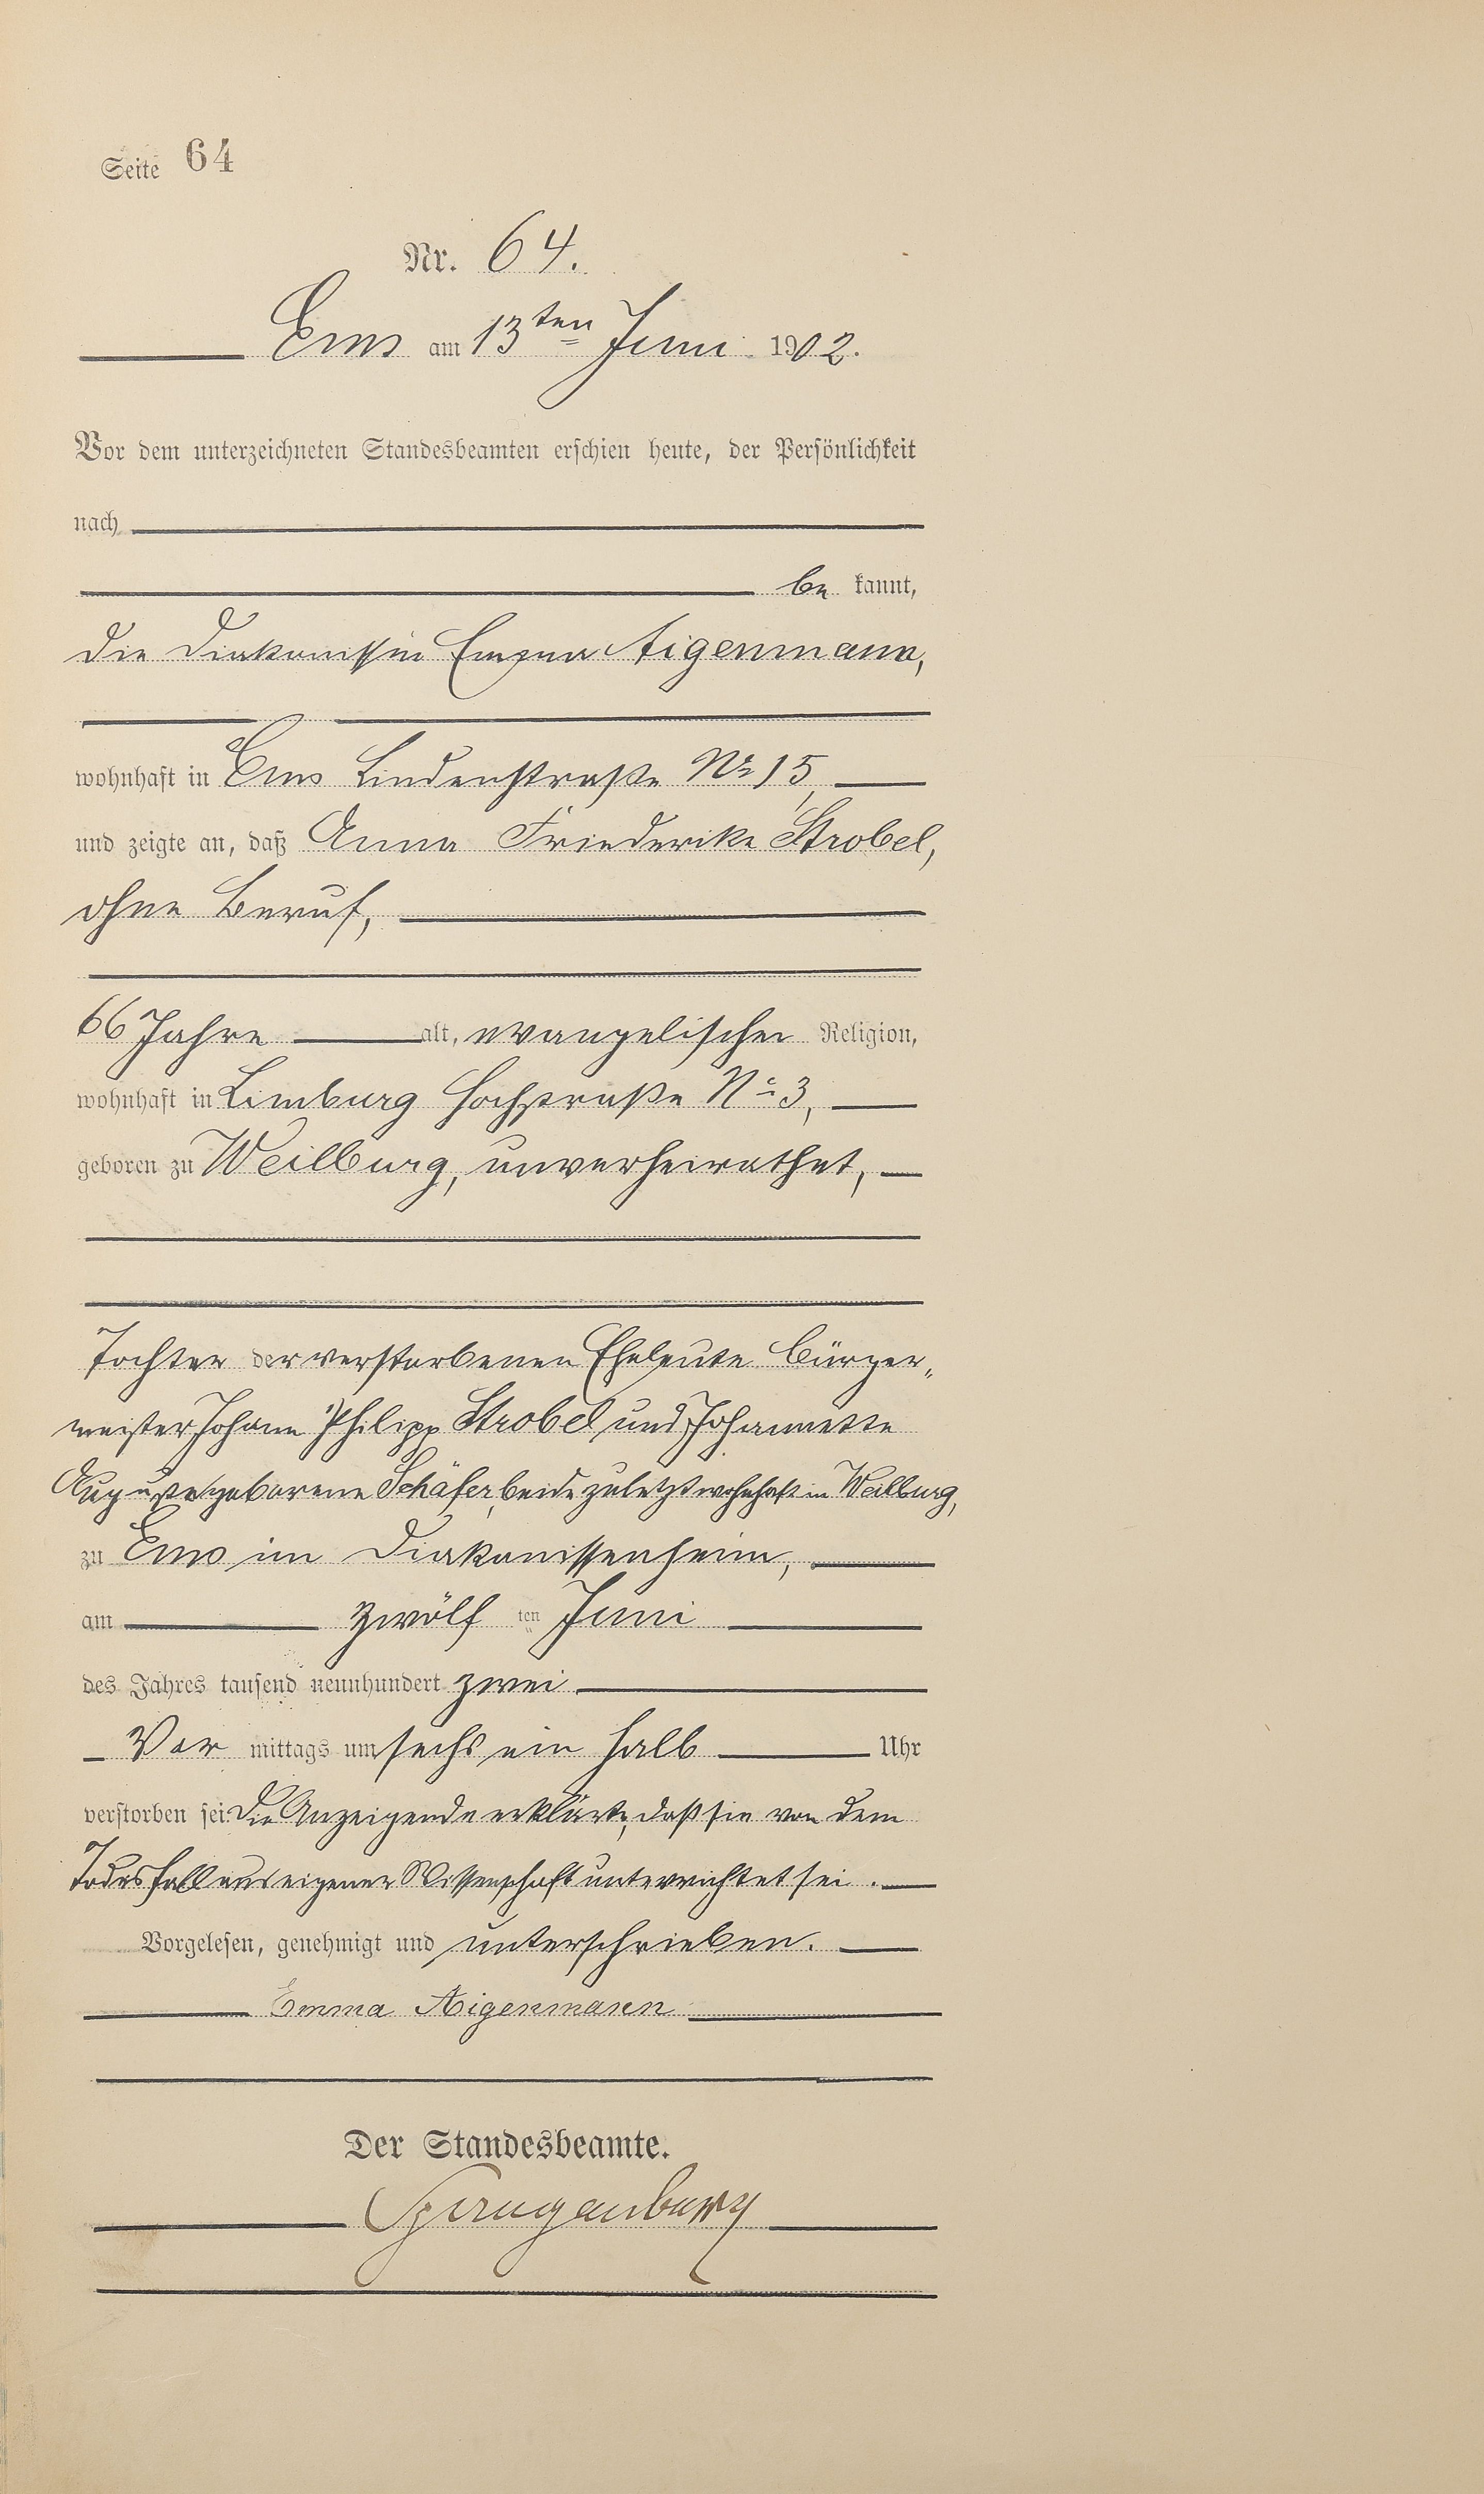 Seite 64
Nr. 64.
Ems am 13ten Juni 1902.
Vor dem unterzeichneten Standesbeamten erschien heute, der Persönlichkeit
nach
be kannt,
die Diakonissin Emma Aigenmann,
wohnhaft in Ems Lindenstraße No 15,
und zeigte an, daß Anna Friederike Strobel,
ohne Beruf,
66 Jahre alt, evangelischer Religion,
wohnhaft in Limburg Hochstraße No 3,
geboren zu Weilburg, unverheirathet,
Tochter der verstorbenen Eheleute Bürger„
meister Johann Philipp Strobel und Johannette
Auguste geborene Schäfer, beide zuletzt wohnhaft in Weilburg,
zu Ems im Diakonissenheim,
am zwölf ten Juni
des Jahres tausend neunhundert zwei
Vor mittags um sechs ein halb Uhr
verstorben sei. Die Anzeigende erklärte, daß sie von dem
Todesfall aus eigener Wissenschaft unterrichtet sei.
Vorgelesen, genehmigt und unterschrieben.
Emma Aigenmann
Der Standesbeamte.